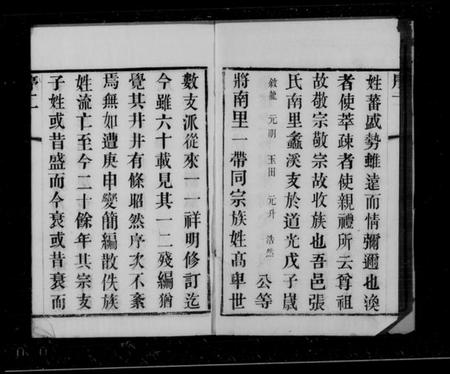 姓蕃戚勢雖遠而情彌邇也渙
者使萃疎者使親禮所云尊祖
故敬宗敬宗故收族也吾邑張
氏南里蠡溪支於道光戊子歲
敘龍 元朋 玉田 元升 浩然 公等
將南里一帶同宗族姓高卑世
數支派從來一一祥明修訂迄
今雖六十載見其一二殘編猶
覺其井井有條昭然序次不紊
焉無如遭庚申變簡編散佚族
姓流亡至今二十餘年其宗支
子姓或昔盛而今衰或昔衰而